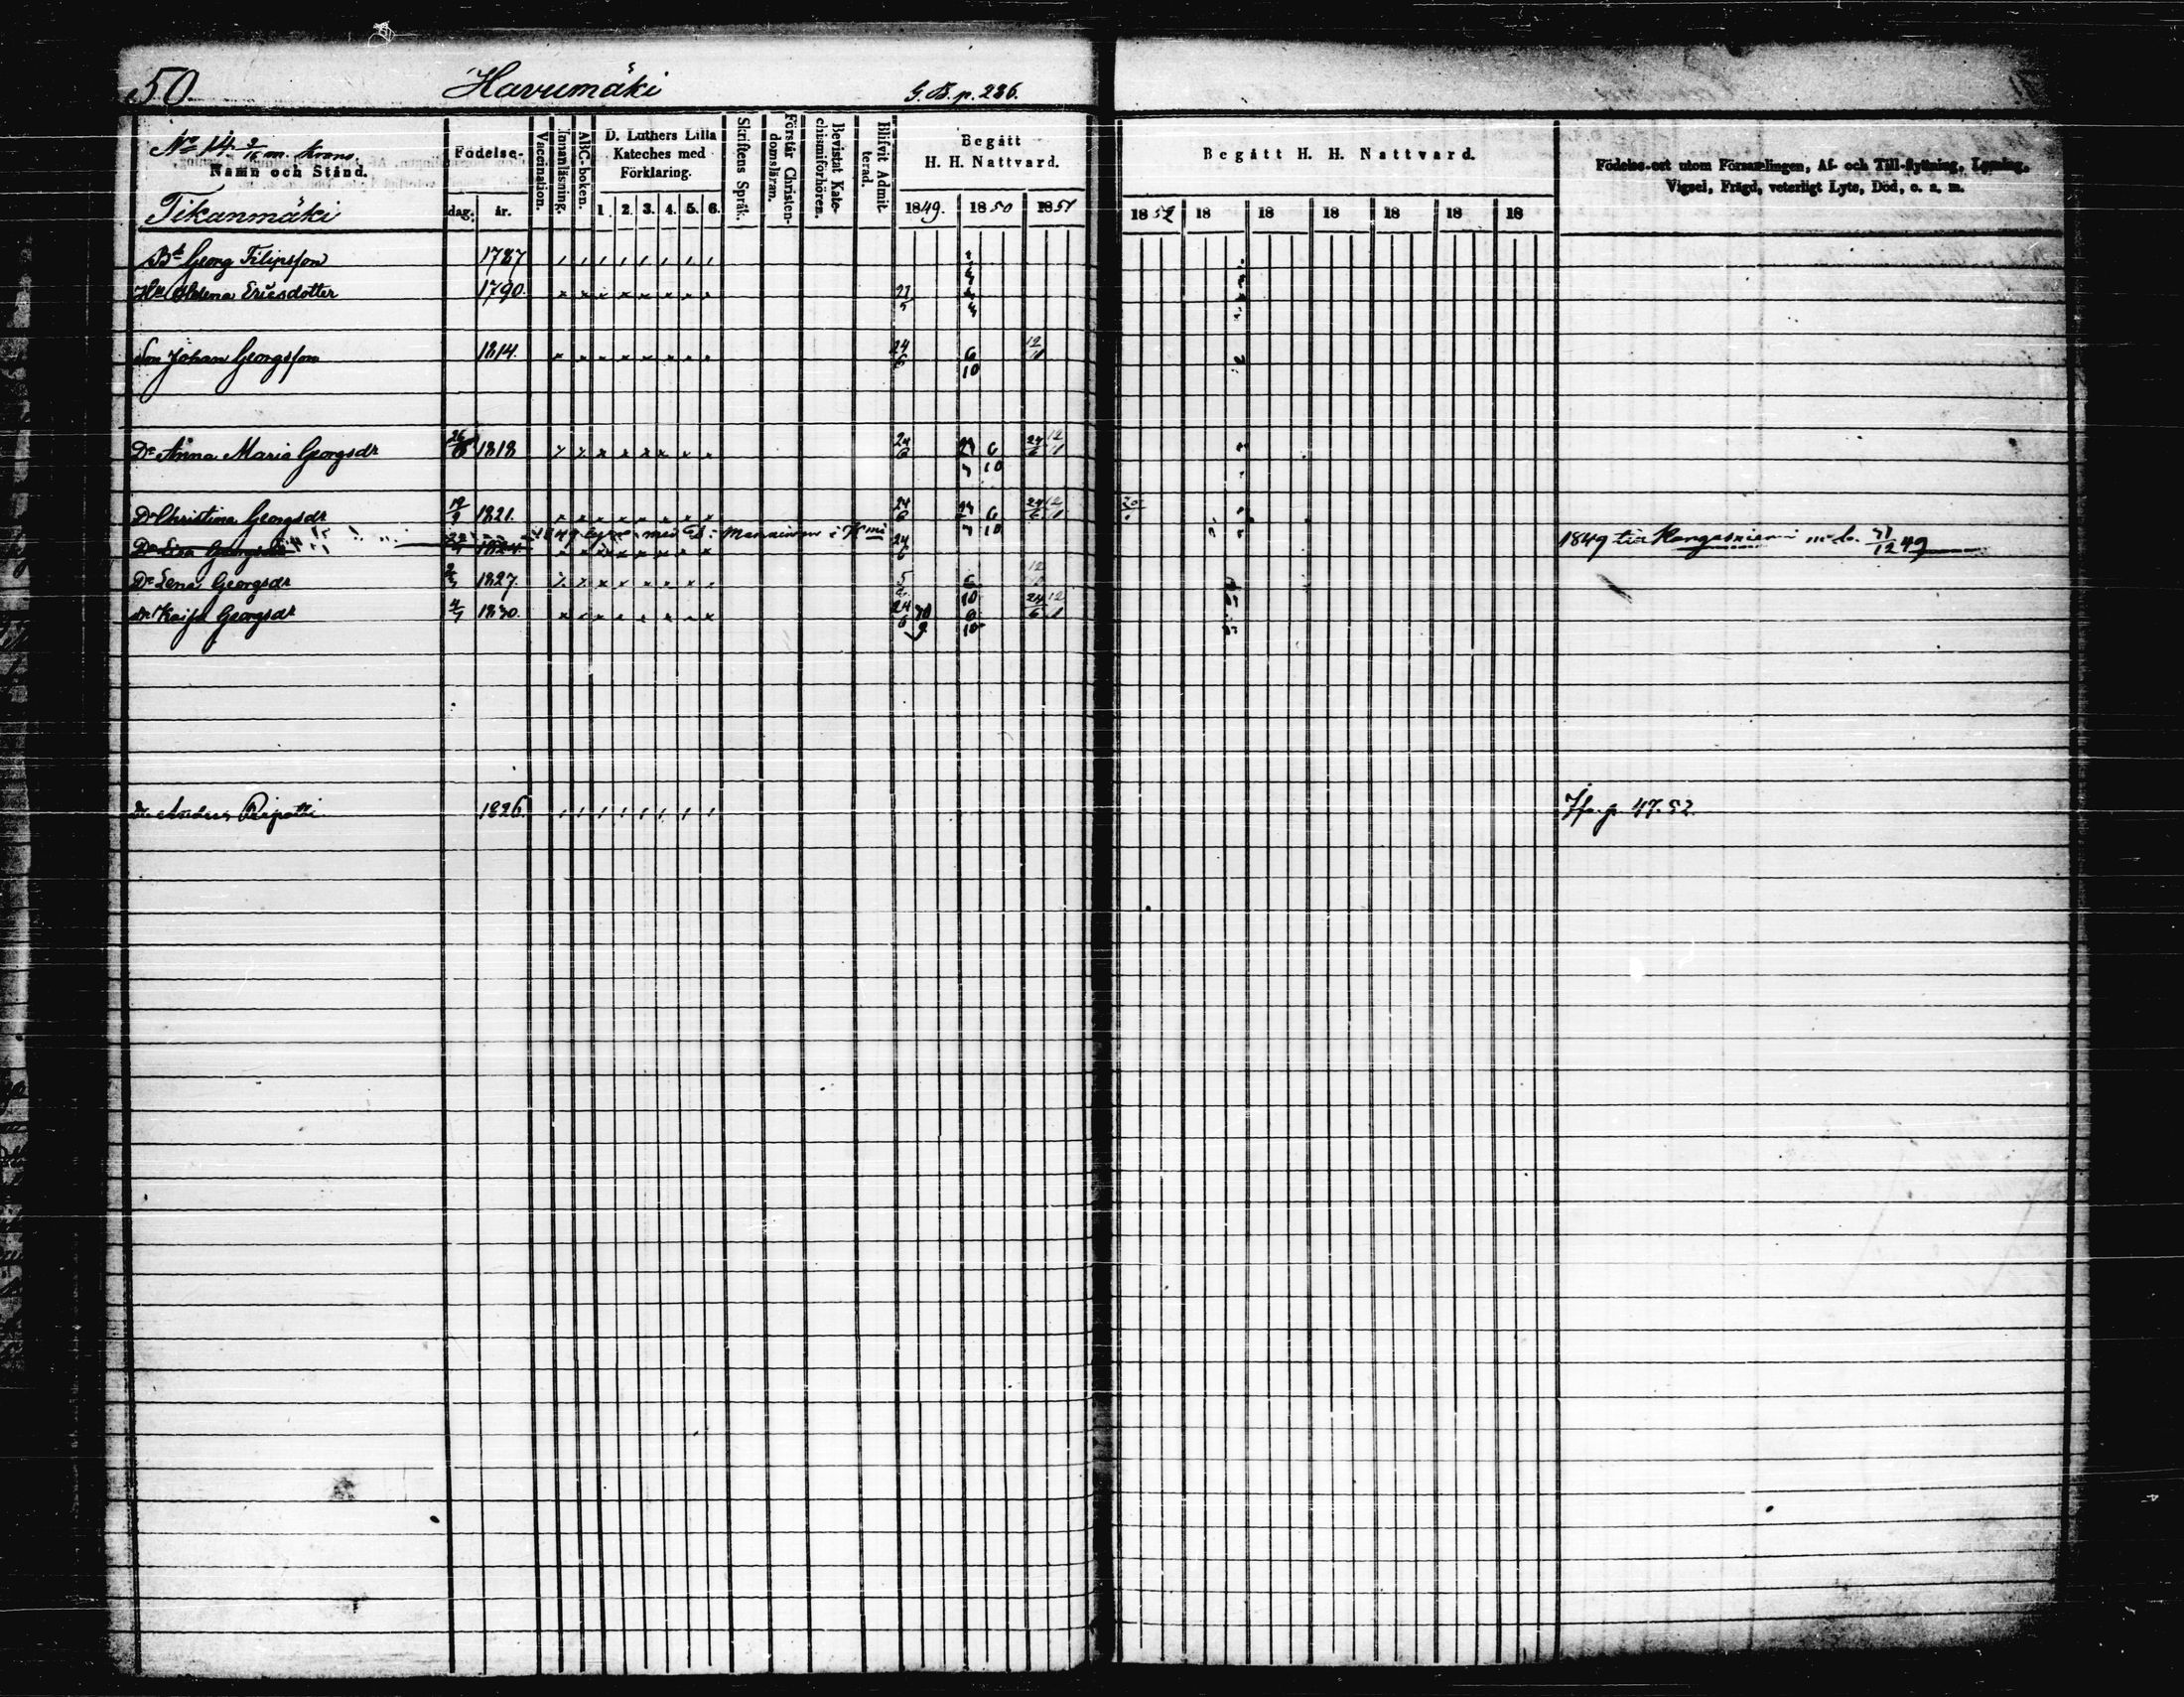 50 Havumäki G.B. p. 286.
No 14. m. krono
Namn och Stånd.
Tikanmäki
Födelse-
dag. år.
Vaccination.
Innanläsning.
ABC-boken.
D. Luthers Lilla
Kateches med
Förklaring.
1. 2. 3. 4. 5. 6.
Skriftens Språk.
Förstår Christen-
domsläran.
Bevistat Kate-
chismiförhören.
Blifvit Admit-
terad.
Begått
H. H. Nattvard.
1849. 1850 1851
Begått H. H. Nattvard.
1852 18 18 18 18 18 18
Födelse-ort utom Församlingen, Af- och Till-flyttning, Lysning,
Vigsel, Frägd, veterligt Lyte, Död, o. a. m.
Bd Georg Filipsson 1787
Hu Helena Ericsdotter 1790.
Son Johan Georgsson 1814. 24/6 6 10 12/11
Dr Anna Maria Georgsdr 1818 24/6 6 10 24/6 12/11
Dr Christina Georgsdr 1821. 24/6 6 10 24/6 12/11
Dr Lisa Georgsdr 1824 24/6 1849 till Kangasniemi 12 49
Dr Lena Georgsdr 1827. 6 10
Dr Kaisa Georgsdr 1830. 24/6 6 10 24/6 12/11
Anders 1826. Jfr p. 47. 52.